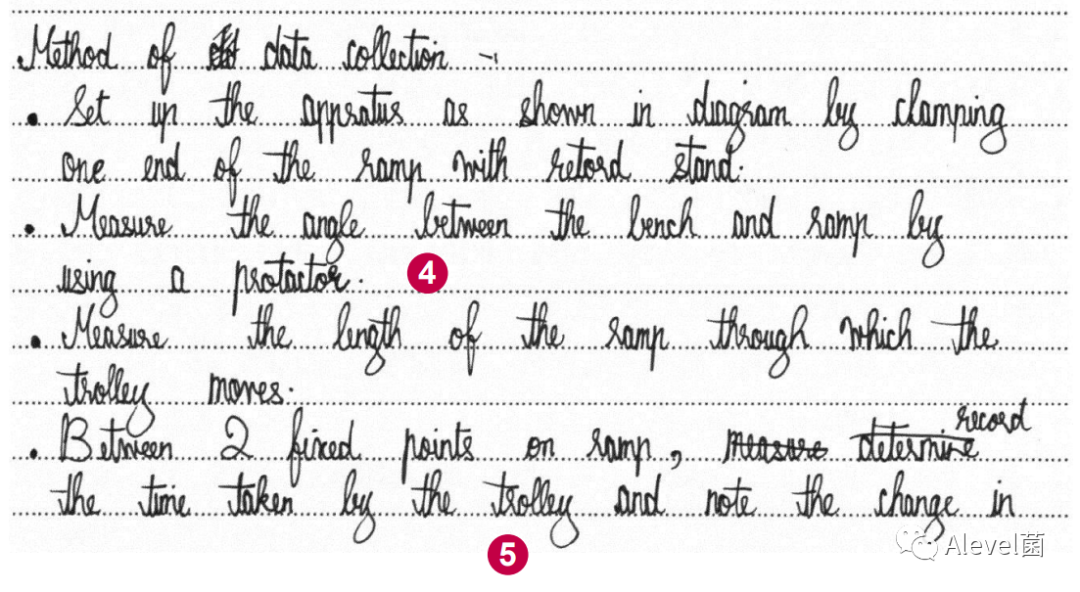 Method of data collection -
• Set up the appratus as shown in diagram by clamping
one end of the ramp with retord stand.
• Measure the angle between the bench and ramp by
using a protactor. 4
• Measure the length of the ramp through which the
trolley moves.
record
• Between 2 fixed points on ramp, measure determine
the time taken by the trolley and note the change in
Alevel菌
5